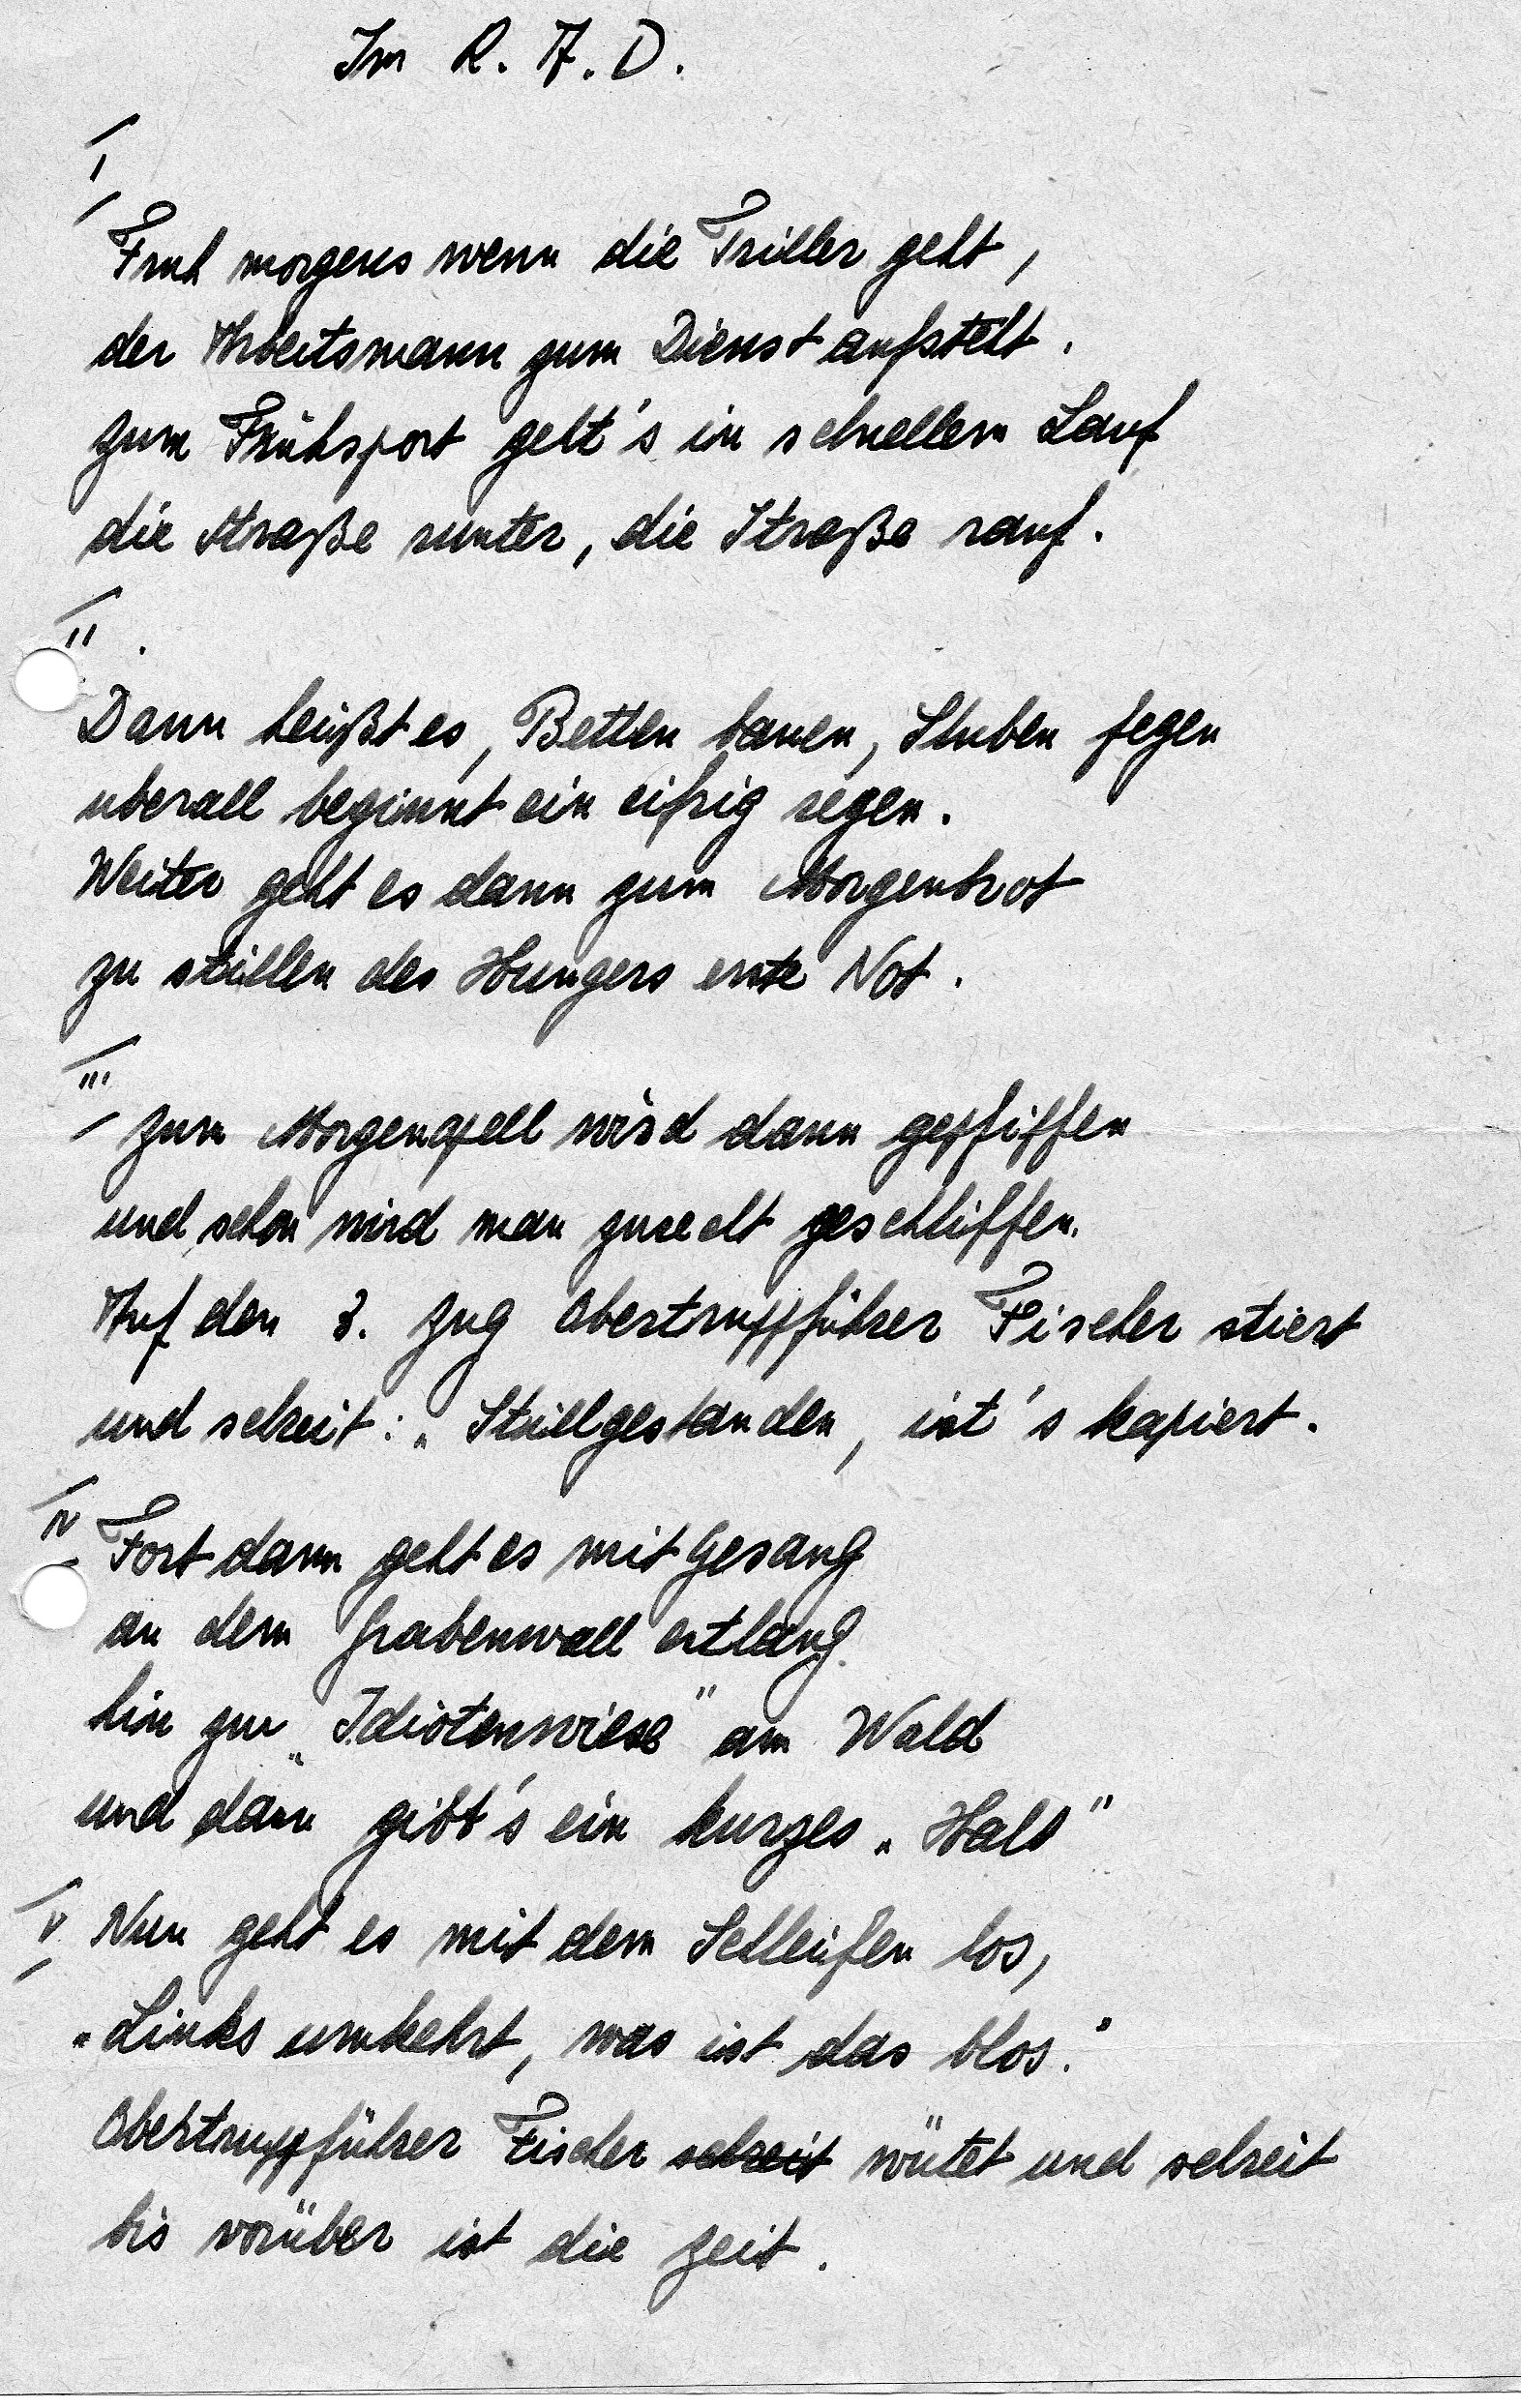 Im R.A.D.
I
Fruh morgens wenn die Triller geht,
der Arbeitsmann zum Dienst aufsteht.
Zum Frühsport geht's in schnellem Lauf
die Straße runter, die Straße rauf.
II.
Dann heißt es, Betten bauen, Stuben fegen
uberall beginnt ein eifrig regen.
Weiter geht es dann zum Morgenbrot
zu stillen des Hungers erste Not.
III
Zum Morgenapell wird dann gepfiffen
und schon wird man zurecht geschliffen.
Auf den 3. Zug Obertruppführer Fischer stiert
und schreit: „Stillgestanden, ist's kapiert.
IV
Fort dann geht es mit Gesang
an dem Grabenwall entlang.
hin zur „Idiotenwiese" am Wald
und dann gibt's ein kurzes „Halt"
V
Nun geht es mit dem Schleifen los,
„Links umkehrt, was ist das blos."
Obertruppführer Fischer schreit wütet und schreit
bis vorüber ist die Zeit.